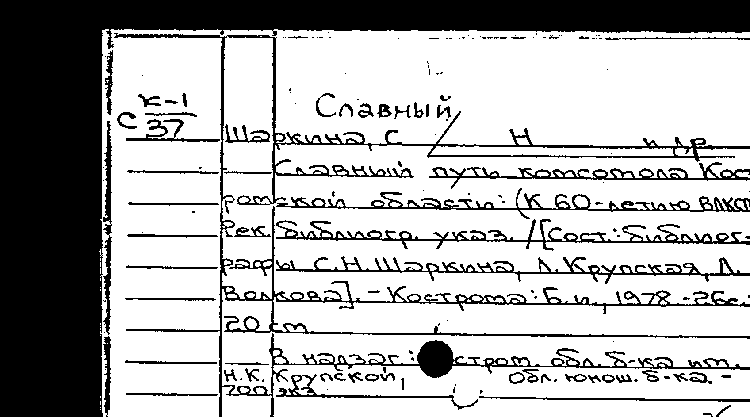 Славный
С К-1/37
Шаркина, С Н и др.
Славный путь комсомола Кост
ромской области: (К 60-летию ВЛКСМ
Рек. библиогр. указ. /[Сост.: библиог-
рафы С.Н. Шаркина, Л. Крупская, Л.
Волкова]. - Кострома: Б.и., 1978 - 26с.
20 см.
В надзаг.: Костром. обл. б-ка им.
Н.К. Крупской, Обл. юнош. б-ка. -
700 экз.